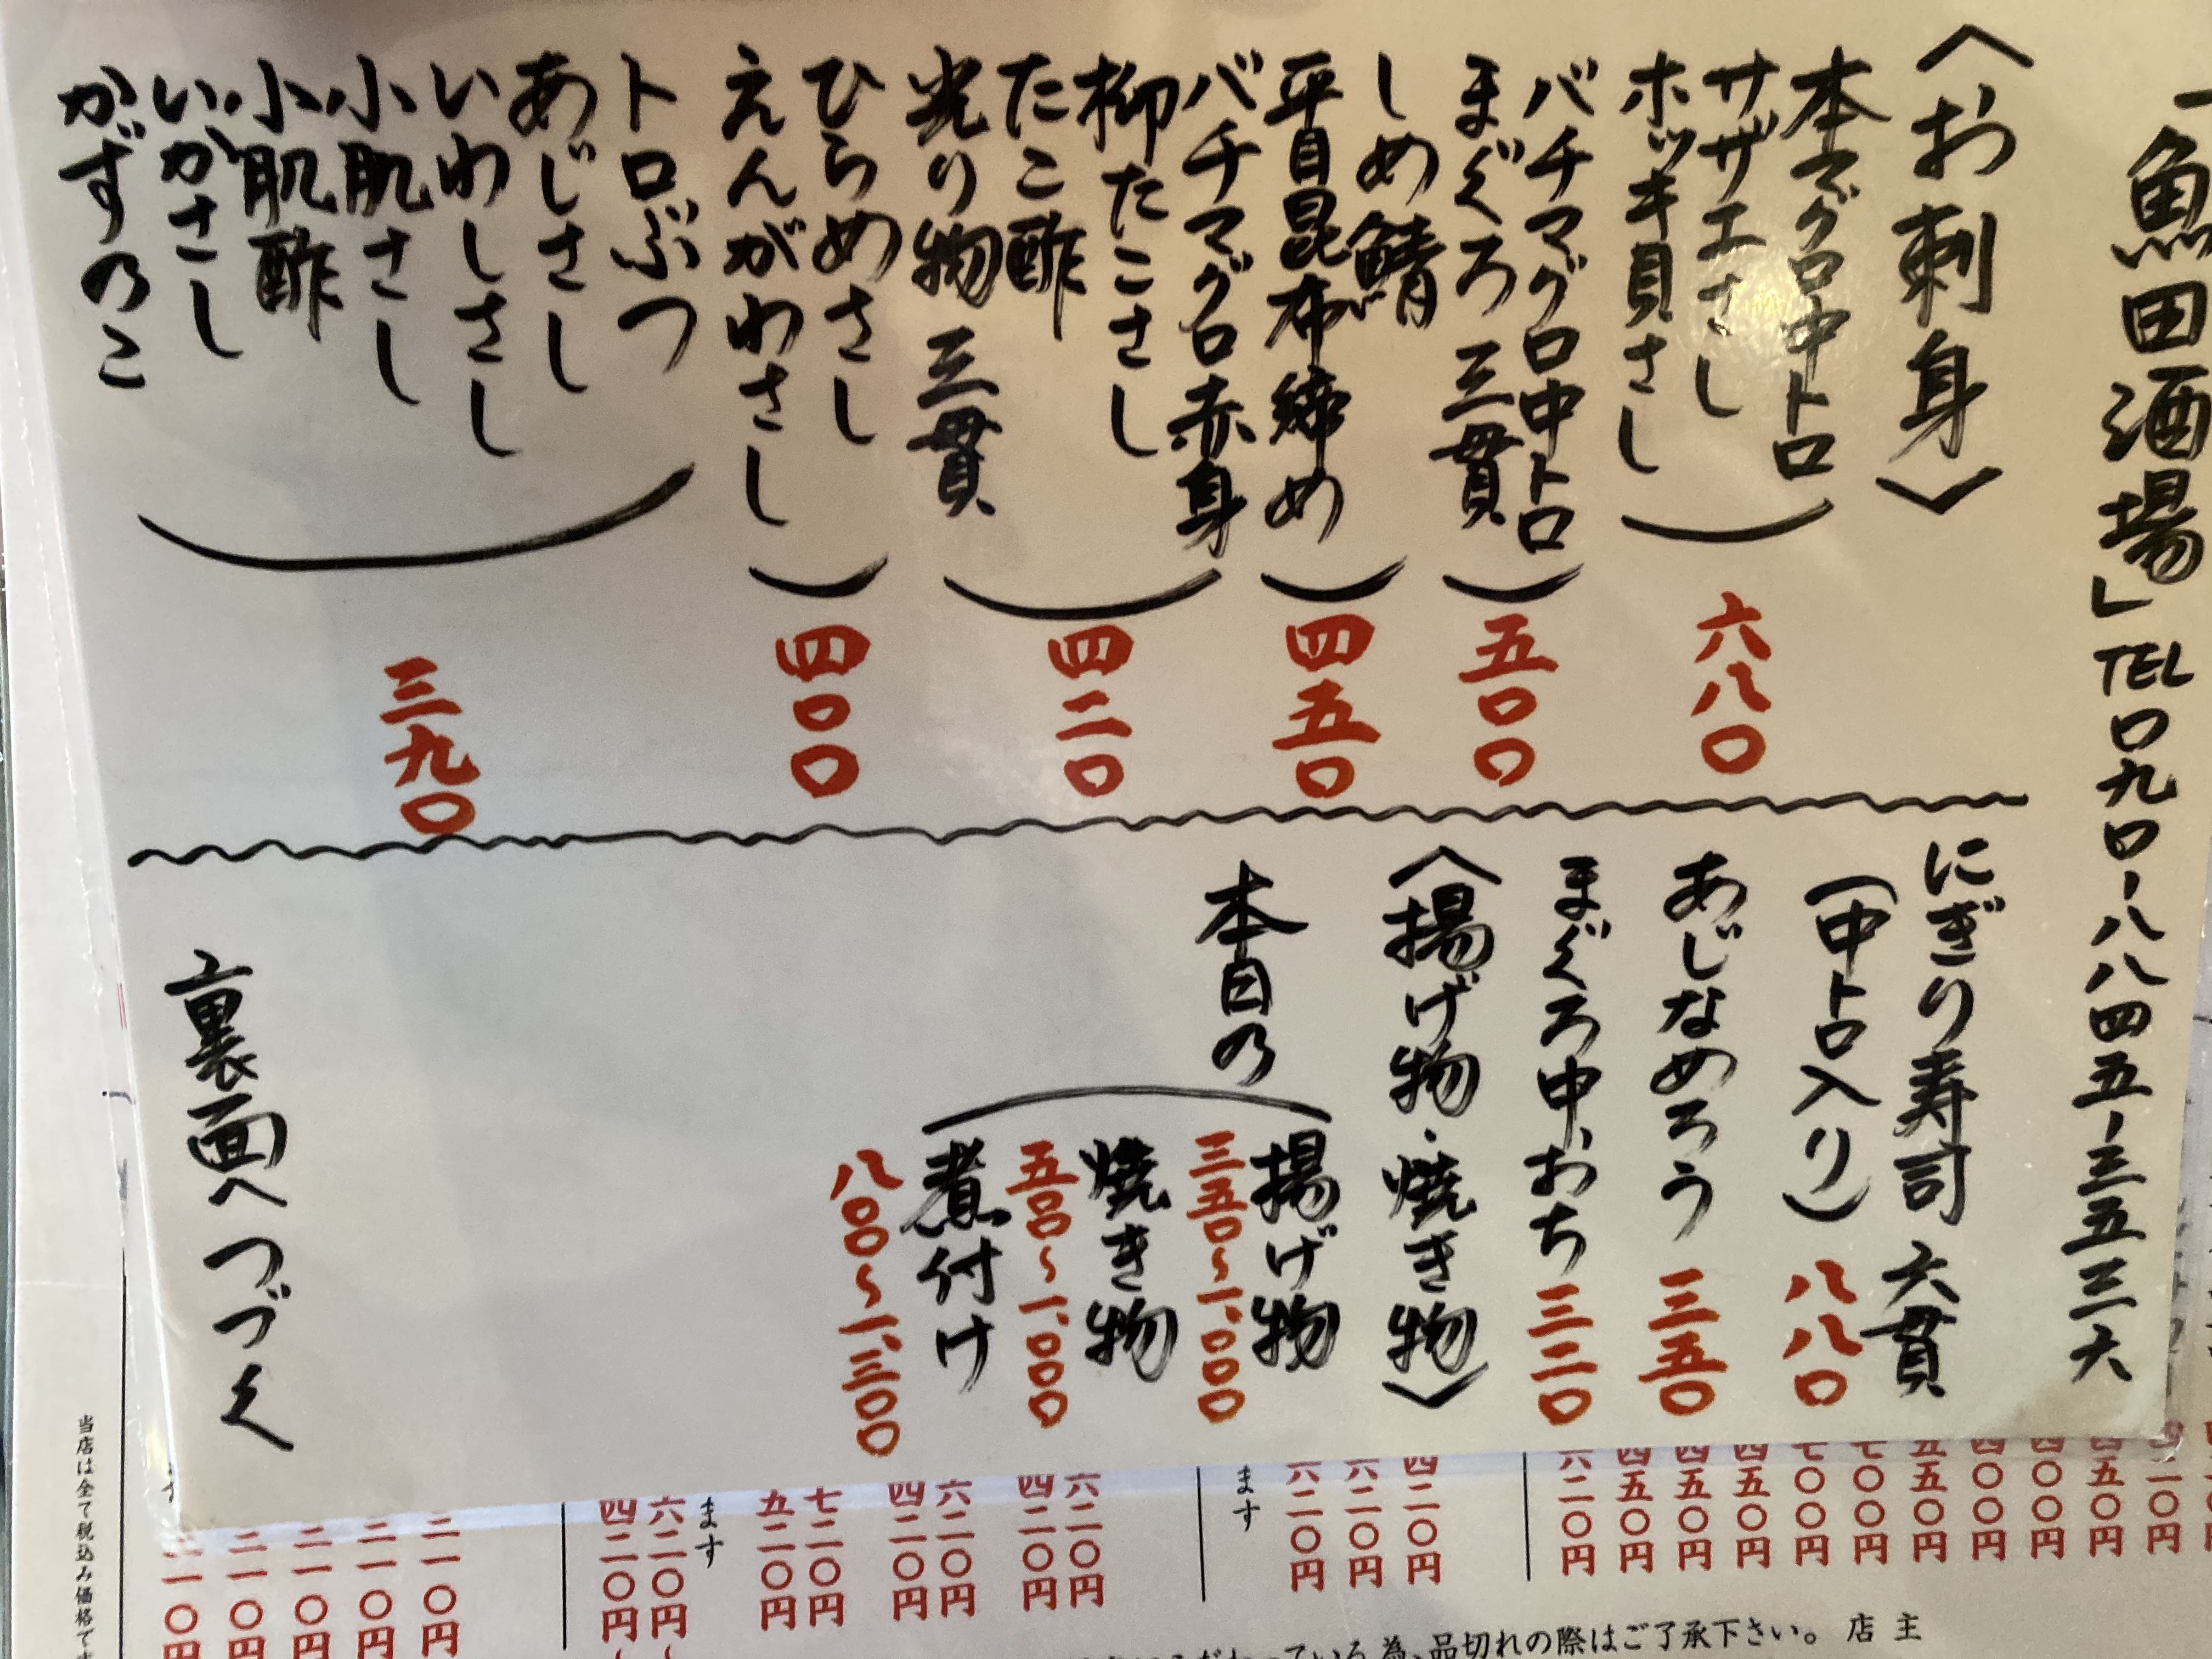 「魚田酒場」TEL〇九〇-八八四五-三五三六
〈お刺身〉
本マグロ中トロ
サザエさし
ホッキ貝さし
六八〇
バチマグロ中トロ
まぐろ三貫
五〇〇
しめ鯖
平目昆布締め
四五〇
バチマグロ赤身
柳たこさし
たこ酢
光り物三貫
四二〇
ひらめさし
えんがわさし
四〇〇
トロぶつ
あじさし
いわしさし
小肌さし
小肌酢
いかさし
かずのこ
三九〇
にぎり寿司 六貫
(中トロ入り) 八八〇
あじなめろう 三五〇
まぐろ中おち 三二〇
〈揚げ物・焼き物〉
本日の
揚げ物
三五〇〜一、〇〇〇
焼き物
五〇〇〜一、〇〇〇
煮付け
八〇〇〜一、三〇〇
裏面へつづく
四〇〇円
四〇〇円
五五〇円
七〇〇円
七〇〇円
四五〇円
四五〇円
四五〇円
六二〇円
四二〇円
六二〇円
六二〇円
ます
六二〇円
四二〇円
六二〇円
四二〇円
七二〇円
五二〇円
ます
六二〇円
四二〇円
二一〇円
二一〇円
二一〇円
二一〇円
当店は全て税込み価格で
為、品切れの際はご了承下さい。 店主